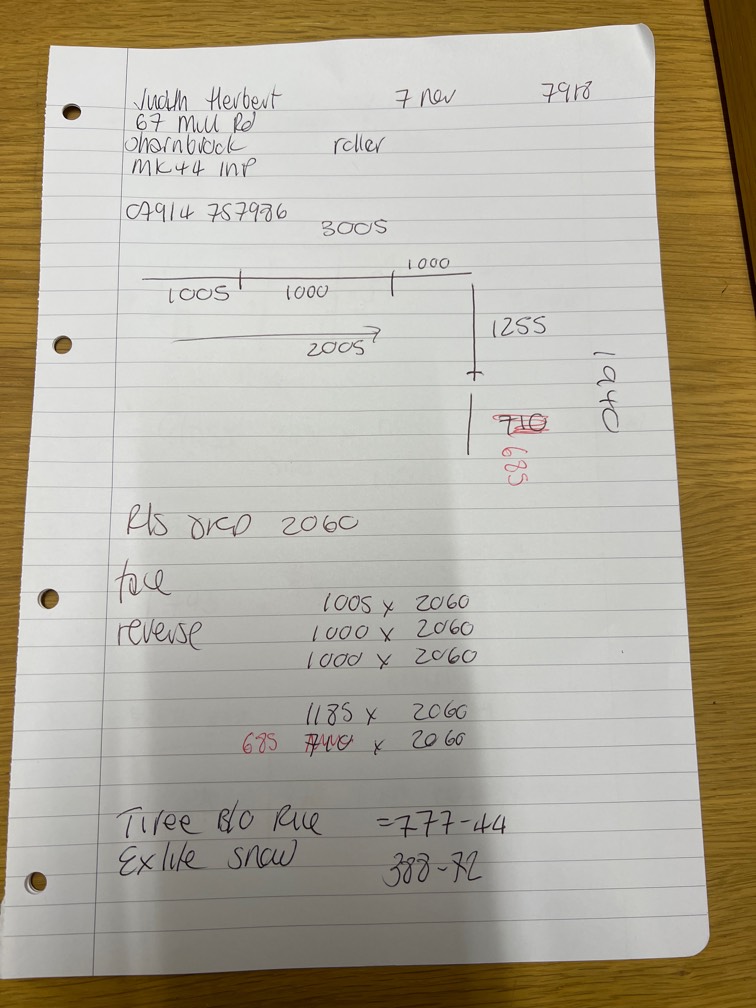 Judith Herbert 7 nov 7918
67 Mill Rd
Sharnbrook roller
MK44 1NP
07914 757986
3005
1000
1005 1000
2005
1255
1940
710
685
Rls DKD 2060
face
1005 x 2060
reverse 1000 x 2060
1000 x 2060
1185 x 2060
685 x 2060
Tiree B/O Rice =777-44
Exlite Snow 388-72